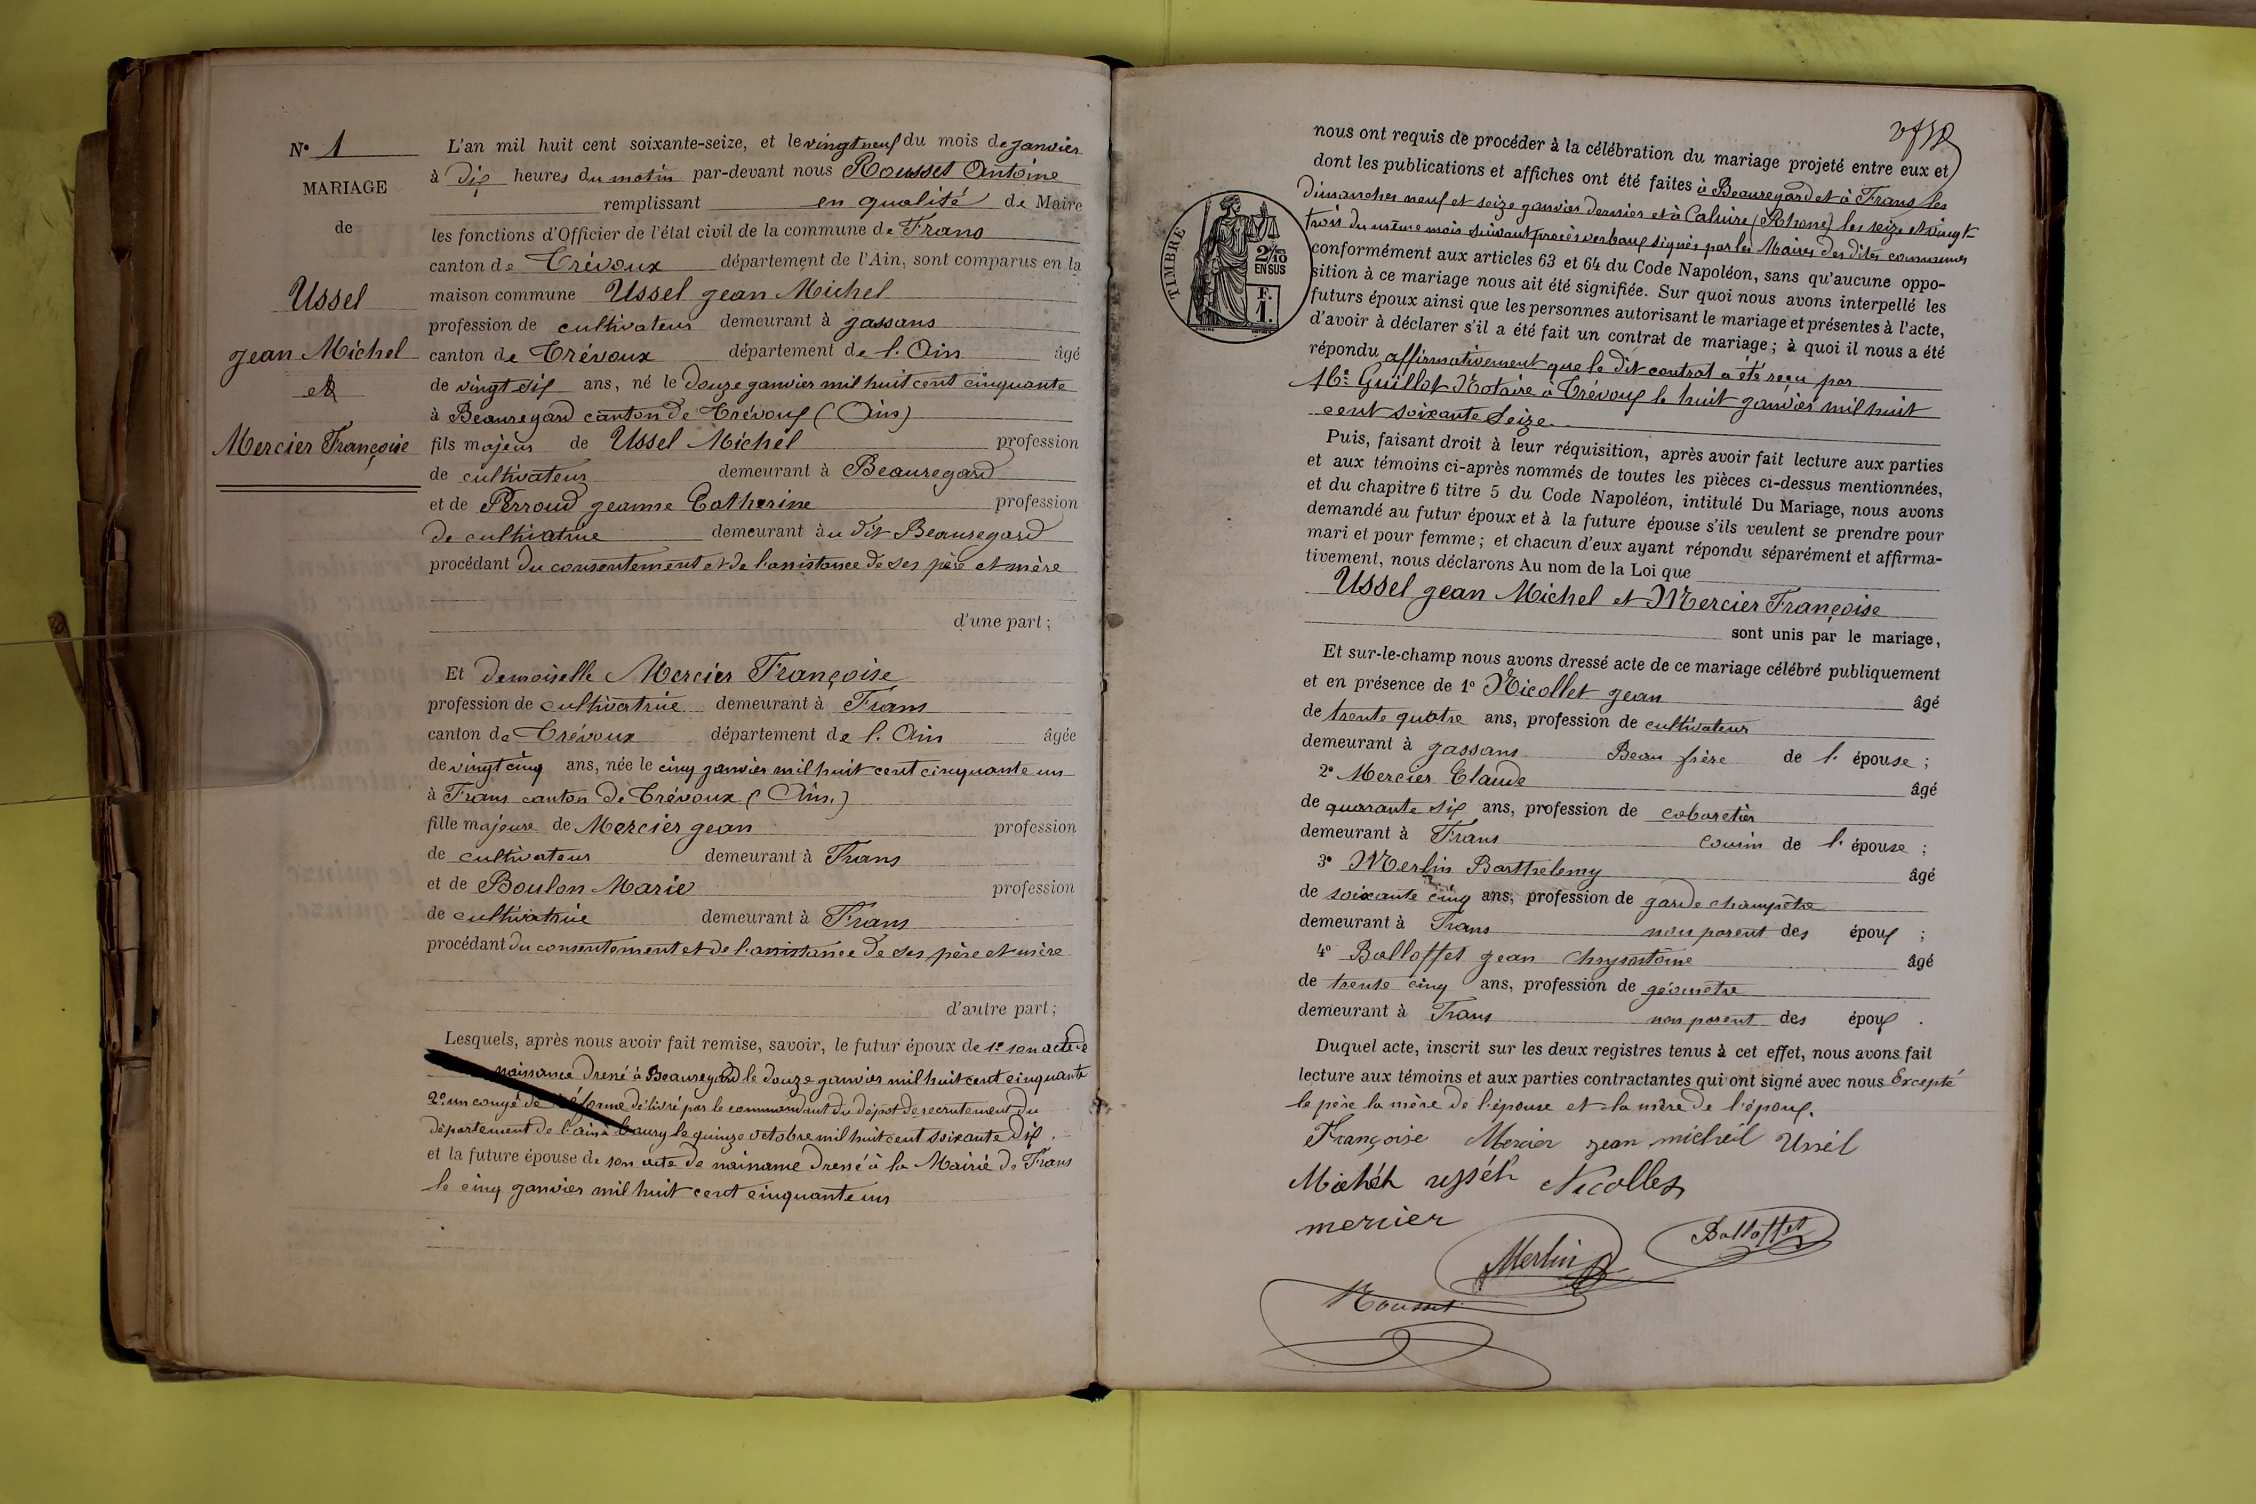 N° 1
MARIAGE
de
Ussel
Jean Michel
et
Mercier Françoise
L'an mil huit cent soixante-seize, et le vingt neuf du mois de janvier
à dix heures du matin par-devant nous Rousset Antoine
remplissant en qualité de Maire
les fonctions d'Officier de l'état civil de la commune de Frans
canton de Trévoux département de l'Ain, sont comparus en la
maison commune Ussel jean Michel
profession de cultivateur demeurant à jassans
canton de Trévoux département de l'Ain âgé
de vingt six ans, né le douze janvier mil huit cent cinquante
à Beauregard canton de Trévoux (Ain)
fils majeur de Ussel Michel profession
de cultivateur demeurant à Beauregard
et de Perroud jeanne Catherine profession
de cultivatrice demeurant à u dit Beauregard
procédant du consentement et de l'assistance de ses père et mère
d'une part ;
Et demoiselle Mercier Françoise
profession de cultivatrice demeurant à Frans
canton de Trévoux département de l'Ain âgée
de vingt cinq ans, née le cinq janvier mil huit cent cinquante un
à Frans canton de Trévoux (Ain.)
fille majeure de Mercier jean profession
de cultivateur demeurant à Frans
et de Boulon Marie profession
de cultivatrice demeurant à Frans
procédant du consentement et de l'assistance de ses père et mère
d'autre part ;
Lesquels, après nous avoir fait remise, savoir, le futur époux de 1° son acte de
naissance dressé à Beauregard le douze janvier mil huit cent cinquante
2° un congé de réforme délivré par le commandant du dépot de recrutement du
département de l'ain à bourg le quinze octobre mil huit cent soixante dix.
et la future épouse de son acte de naissance dressé à la Mairie de Frans
le cinq janvier mil huit cent cinquante un
nous ont requis de procéder à la célébration du mariage projeté entre eux et
dont les publications et affiches ont été faites à Beauregard et à Frans les
dimanches neuf et seize janvier dernier et à Caluire (Rhone) les seize et vingt
trois du même mois suivant procès verbaux signés par les Maires des dites communes
TIMBRE
2/10
EN SUS
F.
1.
conformément aux articles 63 et 64 du Code Napoléon, sans qu'aucune oppo-
sition à ce mariage nous ait été signifiée. Sur quoi nous avons interpellé les
futurs époux ainsi que les personnes autorisant le mariage et présentes à l'acte,
d'avoir à déclarer s'il a été fait un contrat de mariage ; à quoi il nous a été
répondu affirmativement que le dit contrat a été reçu par
Me Guillot Notaire à Trévoux le huit janvier mil huit
cent soixante Seize
Puis, faisant droit à leur réquisition, après avoir fait lecture aux parties
et aux témoins ci-après nommés de toutes les pièces ci-dessus mentionnées,
et du chapitre 6 titre 5 du Code Napoléon, intitulé Du Mariage, nous avons
demandé au futur époux et à la future épouse s'ils veulent se prendre pour
mari et pour femme ; et chacun d'eux ayant répondu séparément et affirma-
tivement, nous déclarons Au nom de la Loi que
Ussel jean Michel et Mercier Françoise
sont unis par le mariage,
Et sur-le-champ nous avons dressé acte de ce mariage célébré publiquement
et en présence de 1° Nicollet jean âgé
de trente quatre ans, profession de cultivateur
demeurant à jassans Beau frère de l' épouse ;
2° Mercier Claude âgé
de quarante six ans, profession de cabaretier
demeurant à Frans cousin de l' épouse ;
3° Merlin Barthelemy âgé
de soixante cinq ans, profession de garde champêtre
demeurant à Frans non parent des époux ;
4° Balloffet jean chrysostôme âgé
de trente cinq ans, profession de géomètre
demeurant à Frans non parent des époux .
Duquel acte, inscrit sur les deux registres tenus à cet effet, nous avons fait
lecture aux témoins et aux parties contractantes qui ont signé avec nous Excepté
le père la mère de l'épouse et la mère de l'époux.
Françoise Mercier jean micheil Ussél
Michél usséll Nicollet
mercier
Merlin Balloffet
Rousset